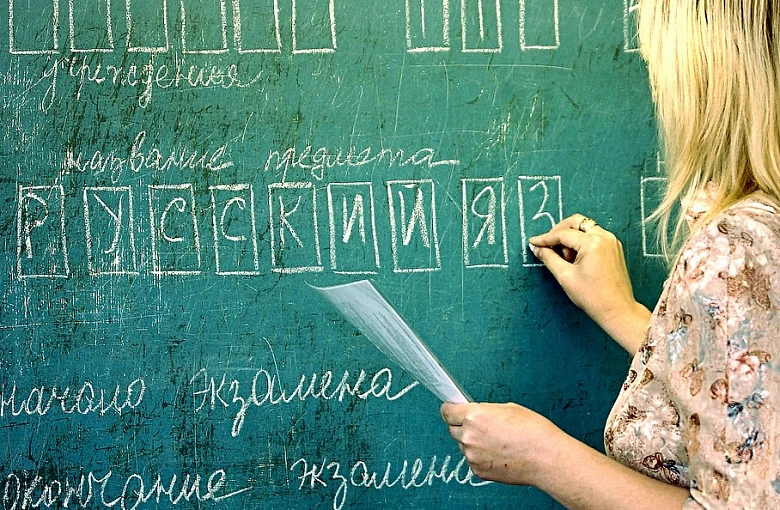 учреждения
название предмета
РУССКИЙ ЯЗ
начало экзамена
окончание экзамена